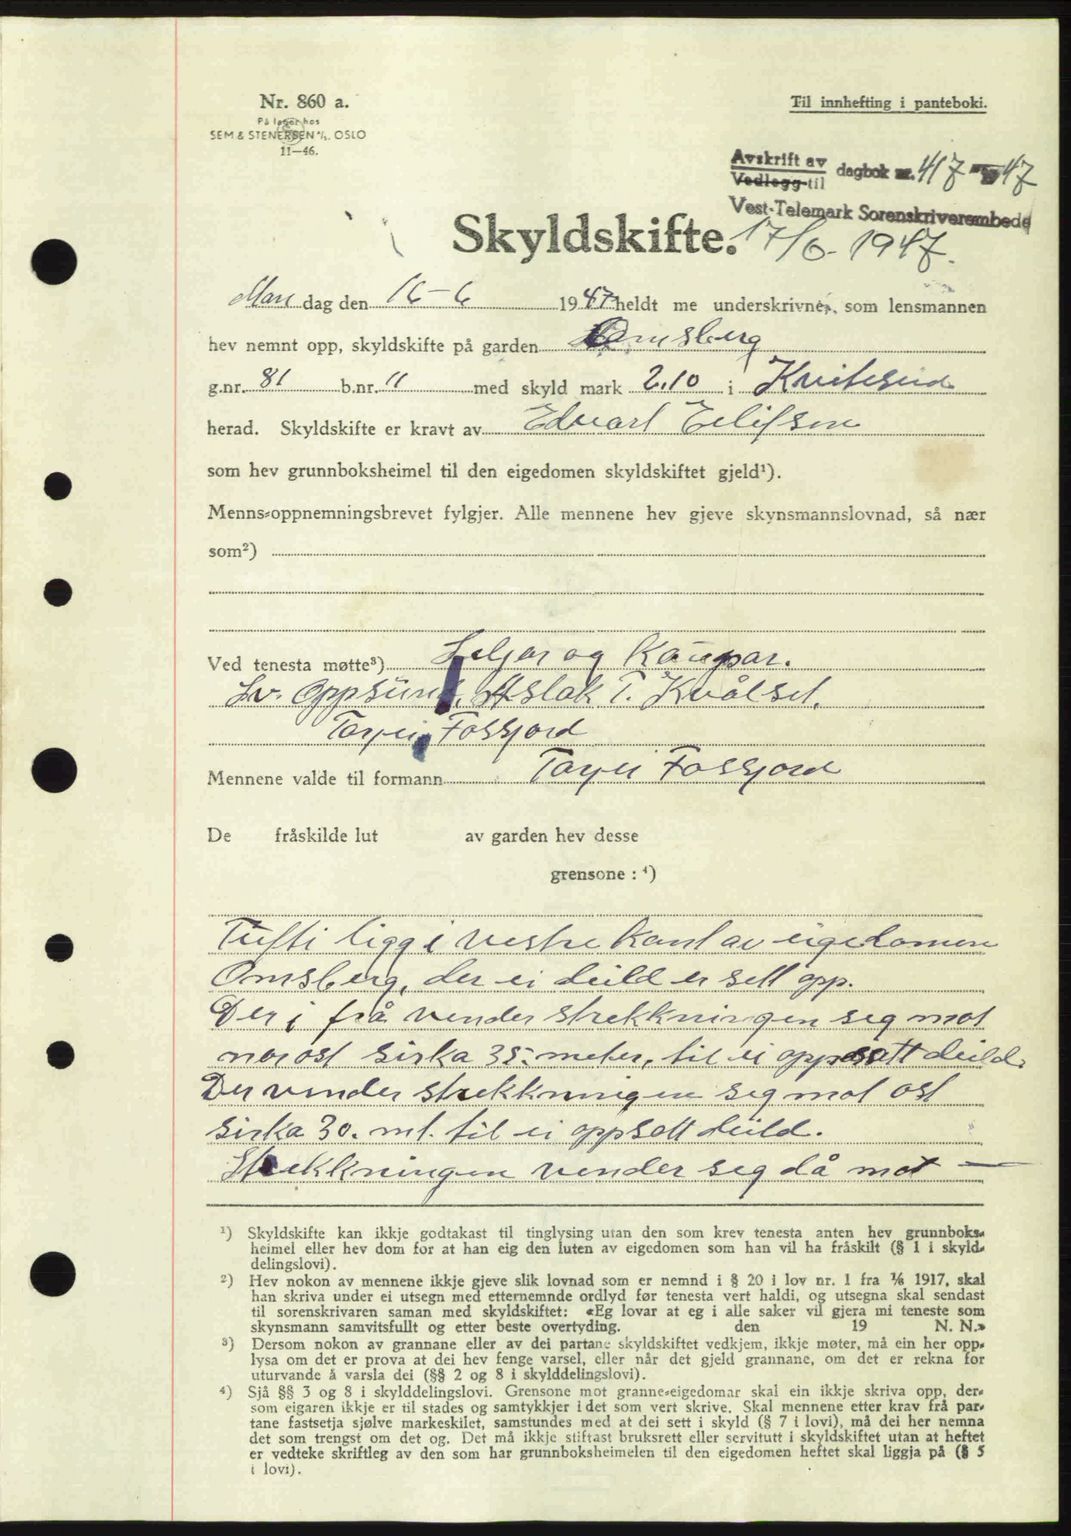 Nr. 860 a.
På lager hos
SEM & STENERSEN A/S. OSLO
11—46.
Til innhefting i panteboki.
Avskrift av
Vedlegg til dagbok nr. 417 - 47
Vest-Telemark Sorenskriverembede
17/6 - 1947.
Skyldskifte.
Mandag den 16-6 1947 heldt me underskrivne, som lensmannen
hev nemnt opp, skyldskifte på garden Omsberg
g.nr. 81 b.nr. 11 med skyld mark 2.10 i Kviteseid
herad. Skyldskifte er kravt av Edvart Eilifsen
som hev grunnboksheimel til den eigedomen skyldskiftet gjeld¹).
Menns-oppnemningsbrevet fylgjer. Alle mennene hev gjeve skynsmannslovnad, så nær
som²)
Ved tenesta møtte³) Seljar og Kaupar.
Lv. Oppsund, Aslak T. Kvålset,
Tarjei Fossjord
Mennene valde til formann Tarjei Fossjord
De fråskilde lut av garden hev desse
grensone : ⁴)
Tufti ligg i vestre kant av eigedomen
Omsberg, der ei deild er sett opp.
Der i frå vender strekkningen seg mot
norost sirka 35. meter, til ei oppsatt deild.
Der vender strekkningen seg mot ost
sirka 30. mt. til ei oppsatt deild.
Strekkningen vender seg då mot —
¹) Skyldskifte kan ikkje godtakast til tinglysing utan den som krev tenesta anten hev grunnboks-
heimel eller hev dom for at han eig den luten av eigedomen som han vil ha fråskilt (§ 1 i skyld-
delingslovi).
²) Hev nokon av mennene ikkje gjeve slik lovnad som er nemnd i § 20 i lov nr. 1 fra 1/6 1917, skal
han skriva under ei utsegn med etternemnde ordlyd før tenesta vert haldi, og utsegna skal sendast
til sorenskrivaren saman med skyldskiftet: «Eg lovar at eg i alle saker vil gjera mi teneste som
skynsmann samvitsfullt og etter beste overtyding. den 19 N. N.»
³) Dersom nokon av grannane eller av dei partane skyldskiftet vedkjem, ikkje møter, må ein her opp-
lysa om det er prova at dei hev fenge varsel, eller når det gjeld grannane, om det er rekna for
uturvande å varsla dei (§§ 2 og 8 i skylddelingslovi).
⁴) Sjå §§ 3 og 8 i skylddelingslovi. Grensone mot granne-eigedomar skal ein ikkje skriva opp, der-
som eigaren ikkje er til stades og samtykkjer i det som vert skrive. Skal mennene etter krav frå par-
tane fastsetja sjølve markeskilet, samstundes med at dei sett i skyld (§ 7 i lovi), må dei her nemna
det som trengst om det og. Det må ikkje stiftast bruksrett eller servitutt i skyldskiftet utan at heftet
er vedteke skriftleg av den som har grunnboksheimelen til den eigedomen heftet skal liggja på (§ 5
i lovi).